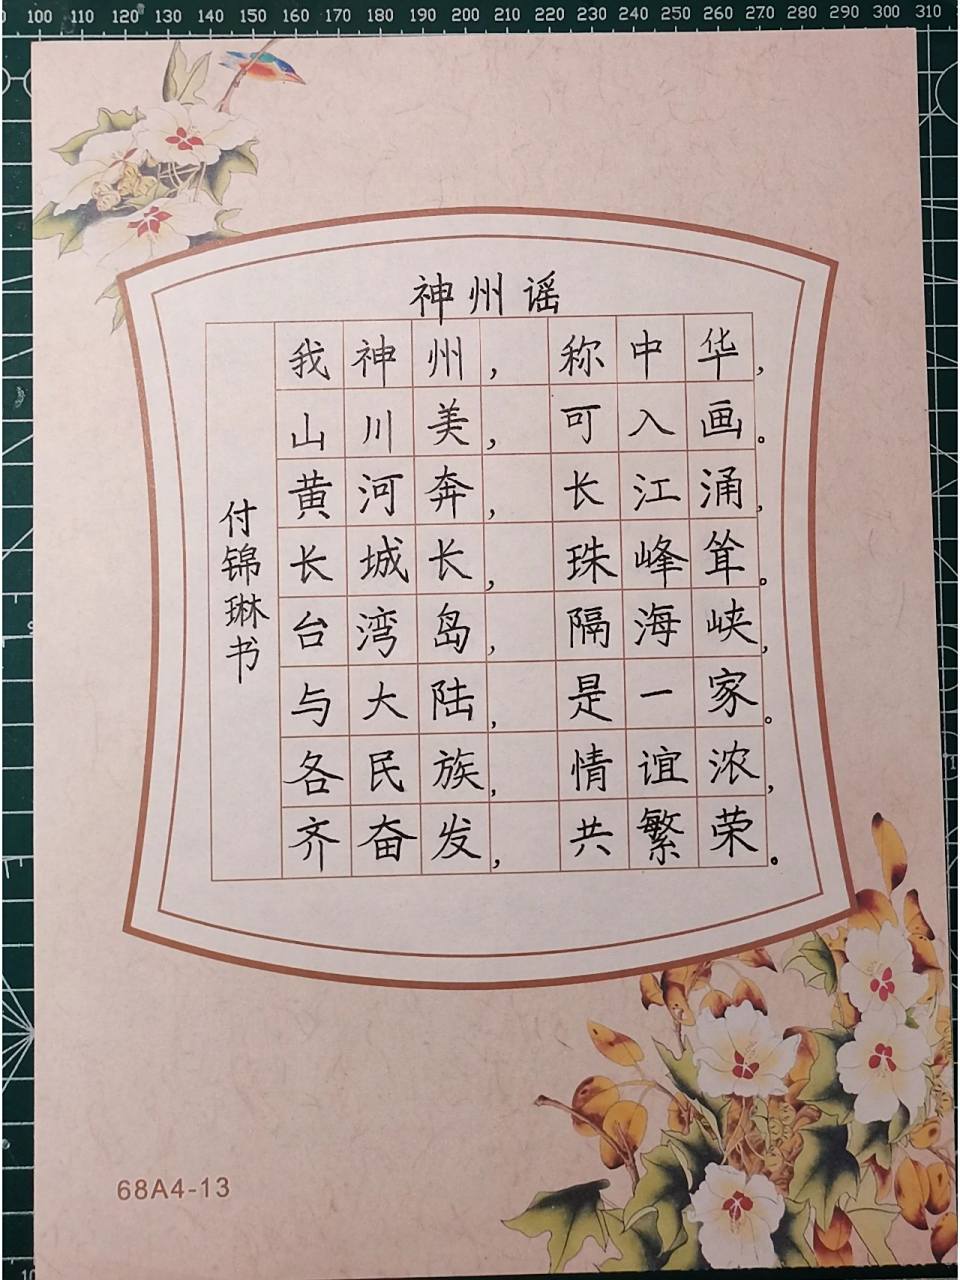 100 110 120 130 140 150 160 170 180 190 200 210 220 230 240 250 260 270 280 290 300 310
神州谣
我神州，称中华，
山川美，可入画。
黄河奔，长江涌，
长城长，珠峰耸。
台湾岛，隔海峡，
与大陆，是一家。
各民族，情谊浓，
齐奋发，共繁荣。
付锦琳书
68A4-13